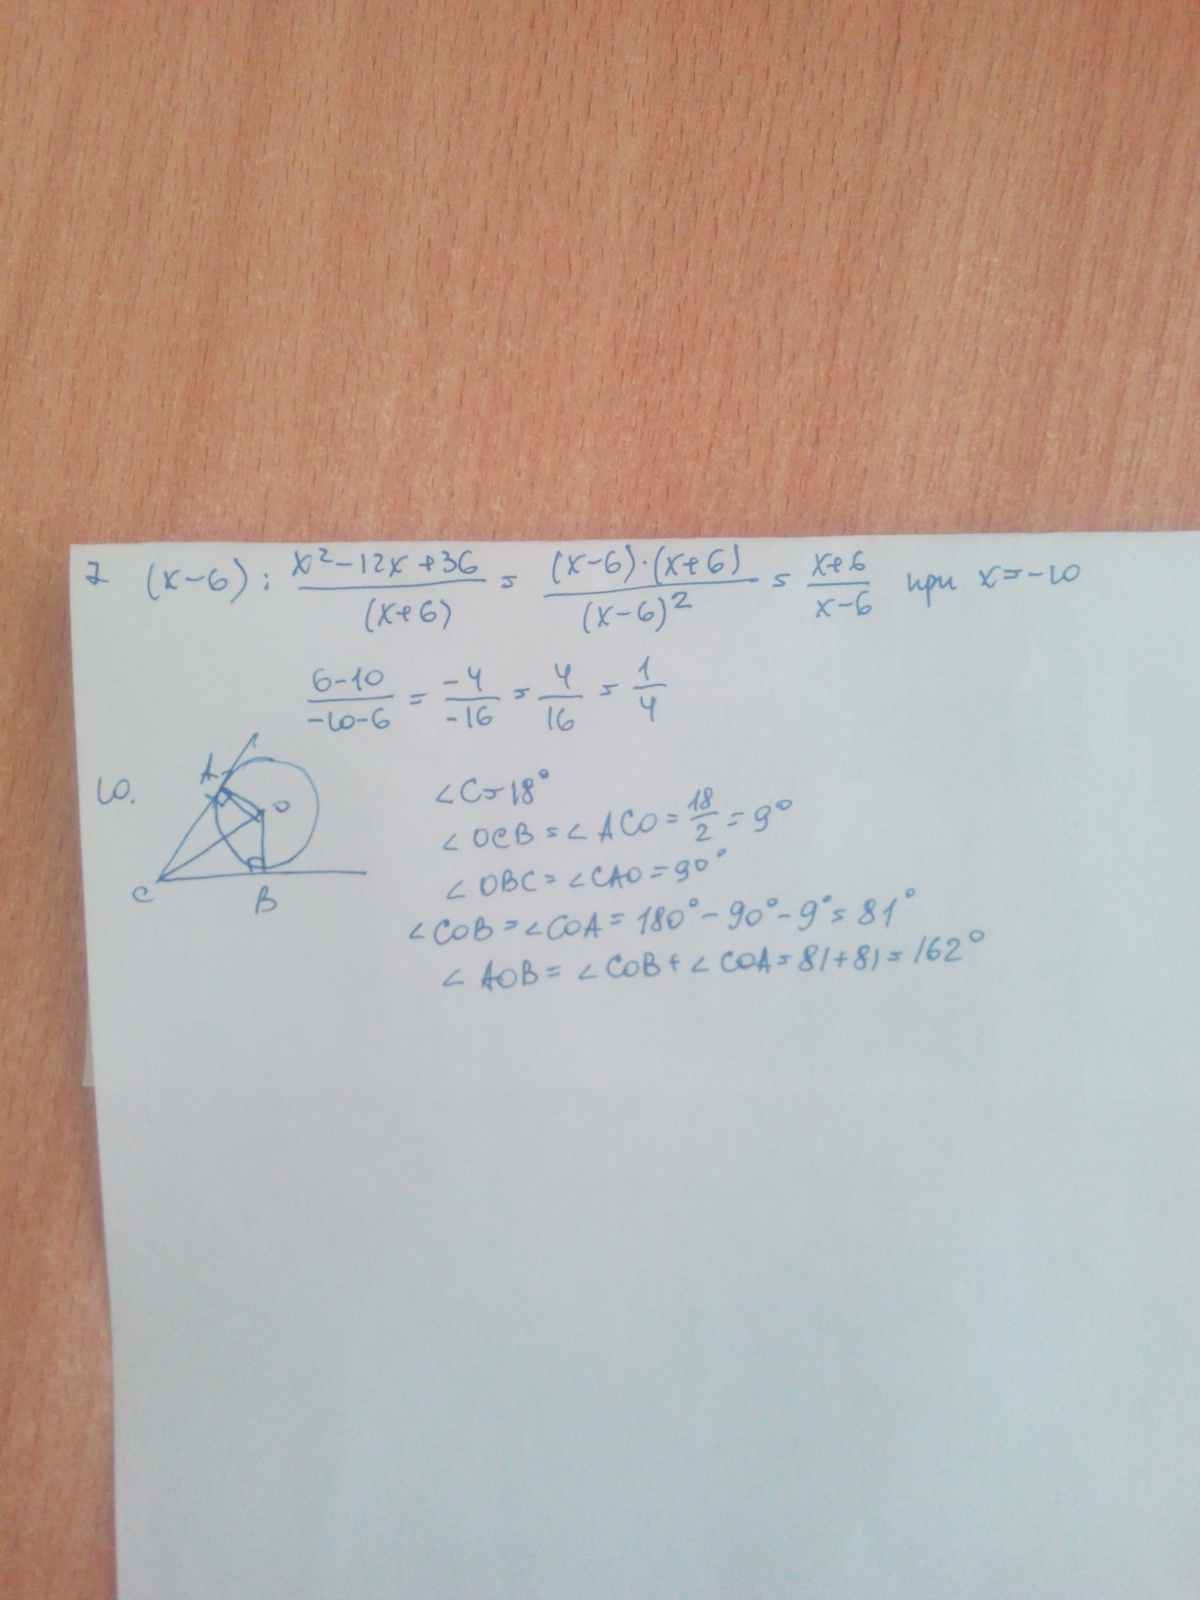 7 (x-6) : \frac{x²-12x+36}{(x+6)} = \frac{(x-6)·(x+6)}{(x-6)²} = \frac{x+6}{x-6} при x=-10
\frac{6-10}{-10-6} = \frac{-4}{-16} = \frac{4}{16} = \frac{1}{4}
10.
A
O
C
B
∠C=18°
∠OCB=∠ACO=\frac{18}{2}=9°
∠OBC=∠CAO=90°
∠COB=∠COA=180°-90°-9°=81°
∠AOB=∠COB+∠COA=81+81=162°